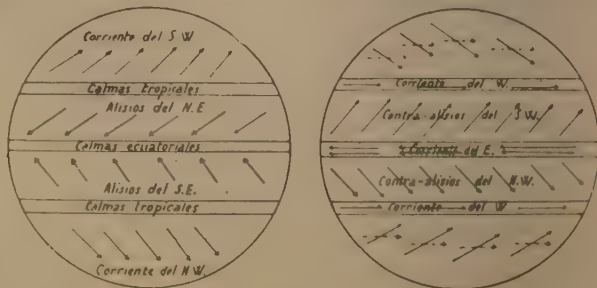 Corriente del S.W.
Calmas tropicales
Alisios del N.E
Calmas ecuatoriales
Alisios del S.E.
Calmas tropicales
Corriente del N.W.
Corriente del W.
Contra-alisios del S.W.
Corriente del E.
Contra-alisios del N.W.
Corriente del W